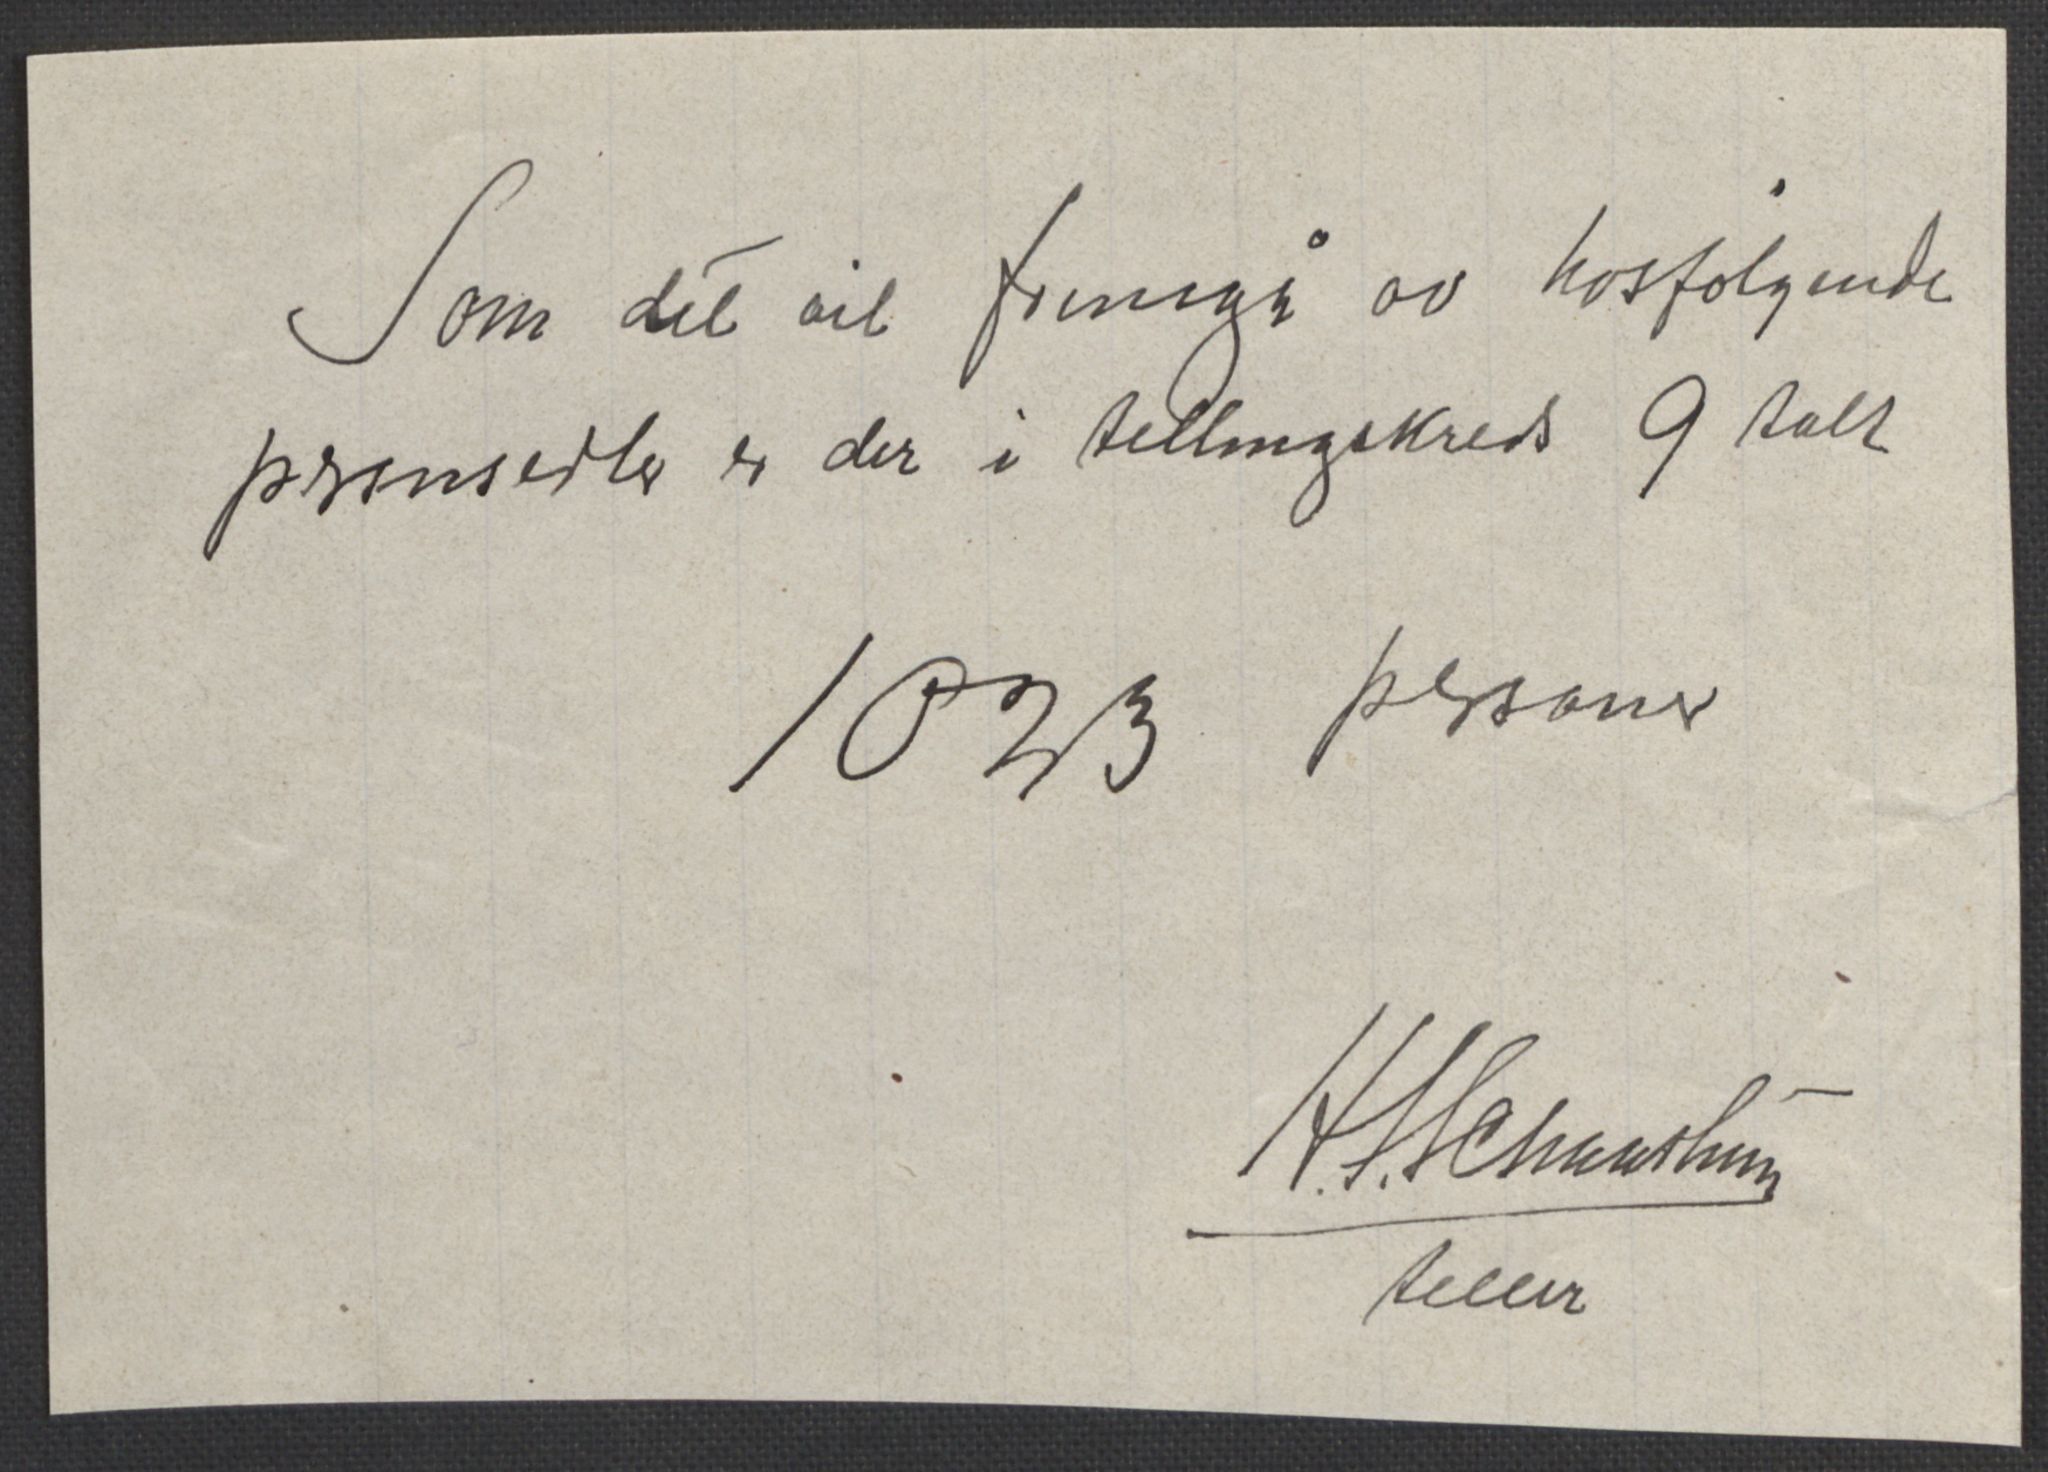 Som det vil fremgå av hosfølgende
personsedler er der i tellingskreds 9 talt
1023 personer
H. S.
teller